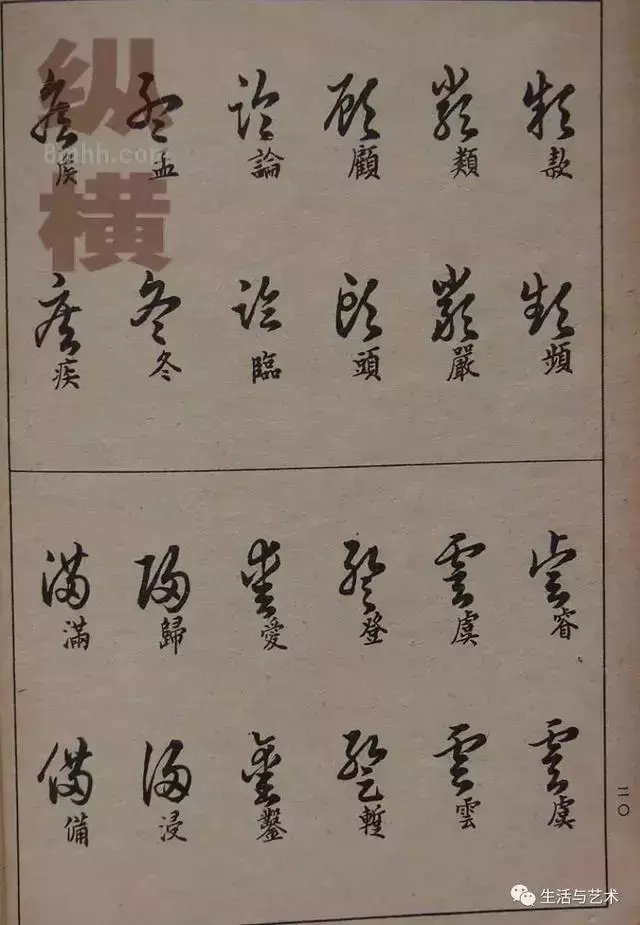 頻
類
嚴
顧
頭
論
臨
孟
冬
疾
睿
虞
虞
雲
登
愛
鑿
歸
浸
滿
備
二〇
纵横
8mhh.com
生活与艺术